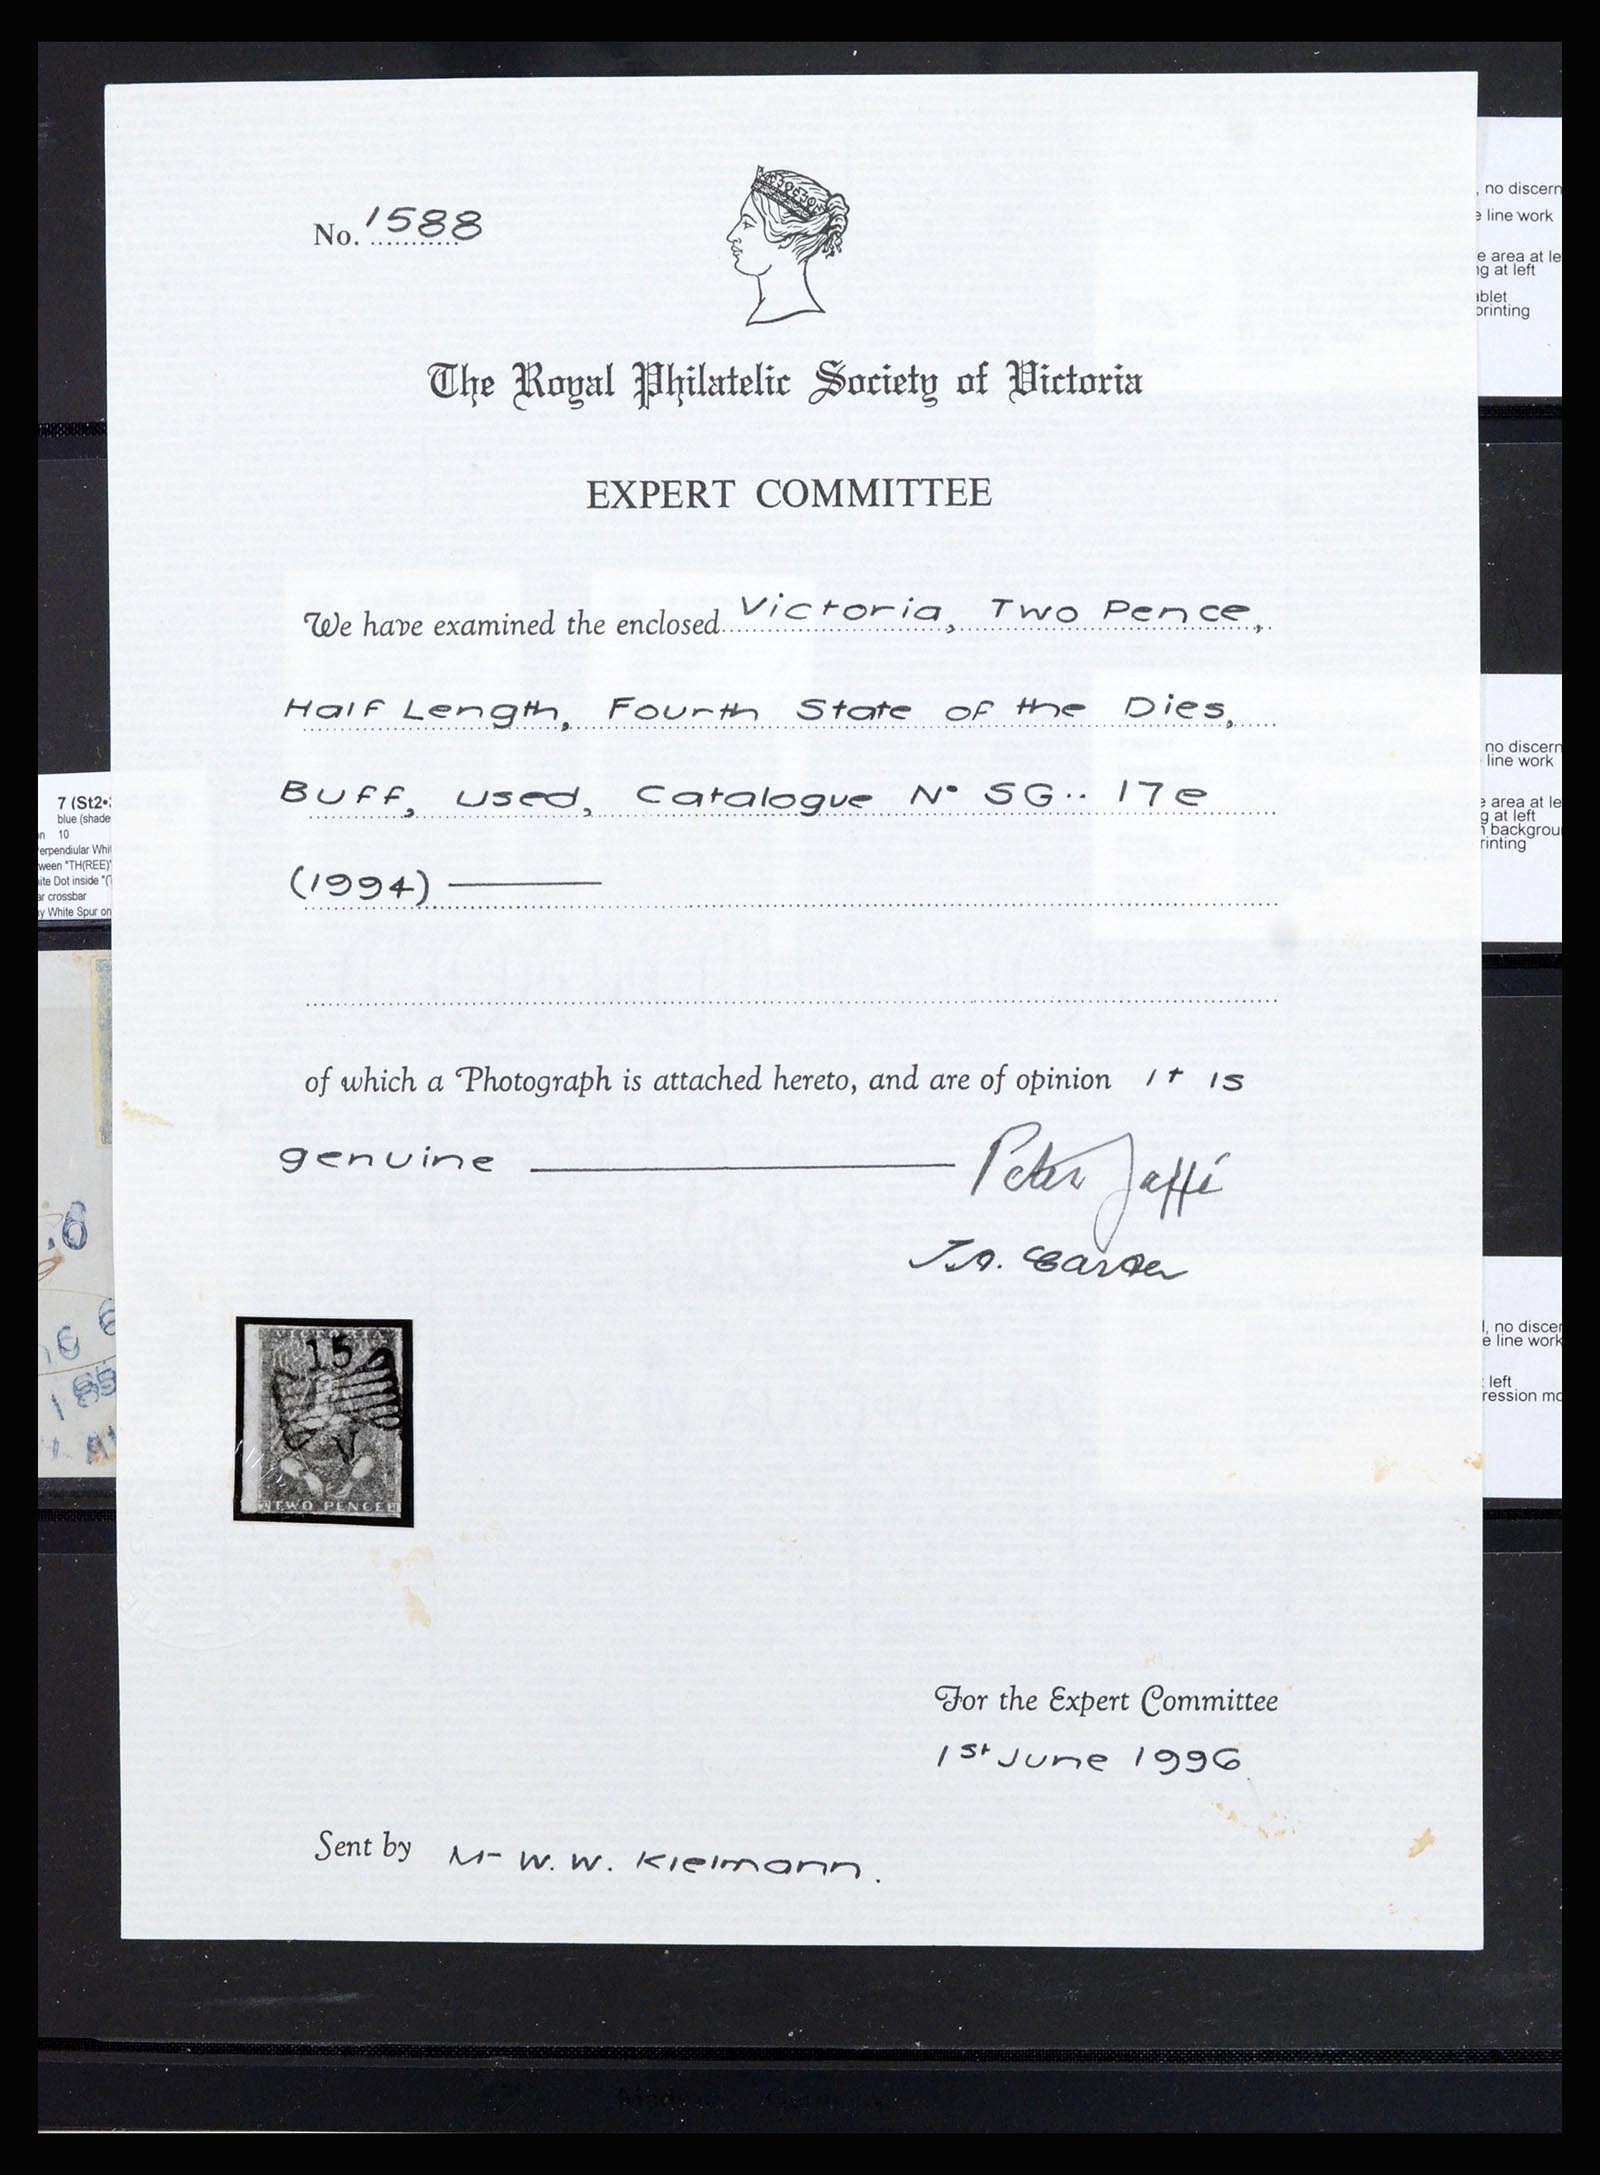 No. 1588
The Royal Philatelic Society of Victoria
EXPERT COMMITTEE
We have examined the enclosed Victoria, Two Pence,
Half Length, Fourth State of the Dies,
Buff, used, Catalogue No SG.. 17e
(1994)
of which a Photograph is attached hereto, and are of opinion it is
genuine
Peter Jaffé
J.A.
VICTORIA
15
V
TWO PENCE
For the Expert Committee
1st June 1996
Sent by Mr W. W. Kielmann.
, no discern
line work
area at le
at left
printing
7 (St2
blue (shade
10
"TH(REE)"
Dot inside
crossbar
White Spur on
no discern
line work
area at le
at left
backgrou
no discer
line work
left